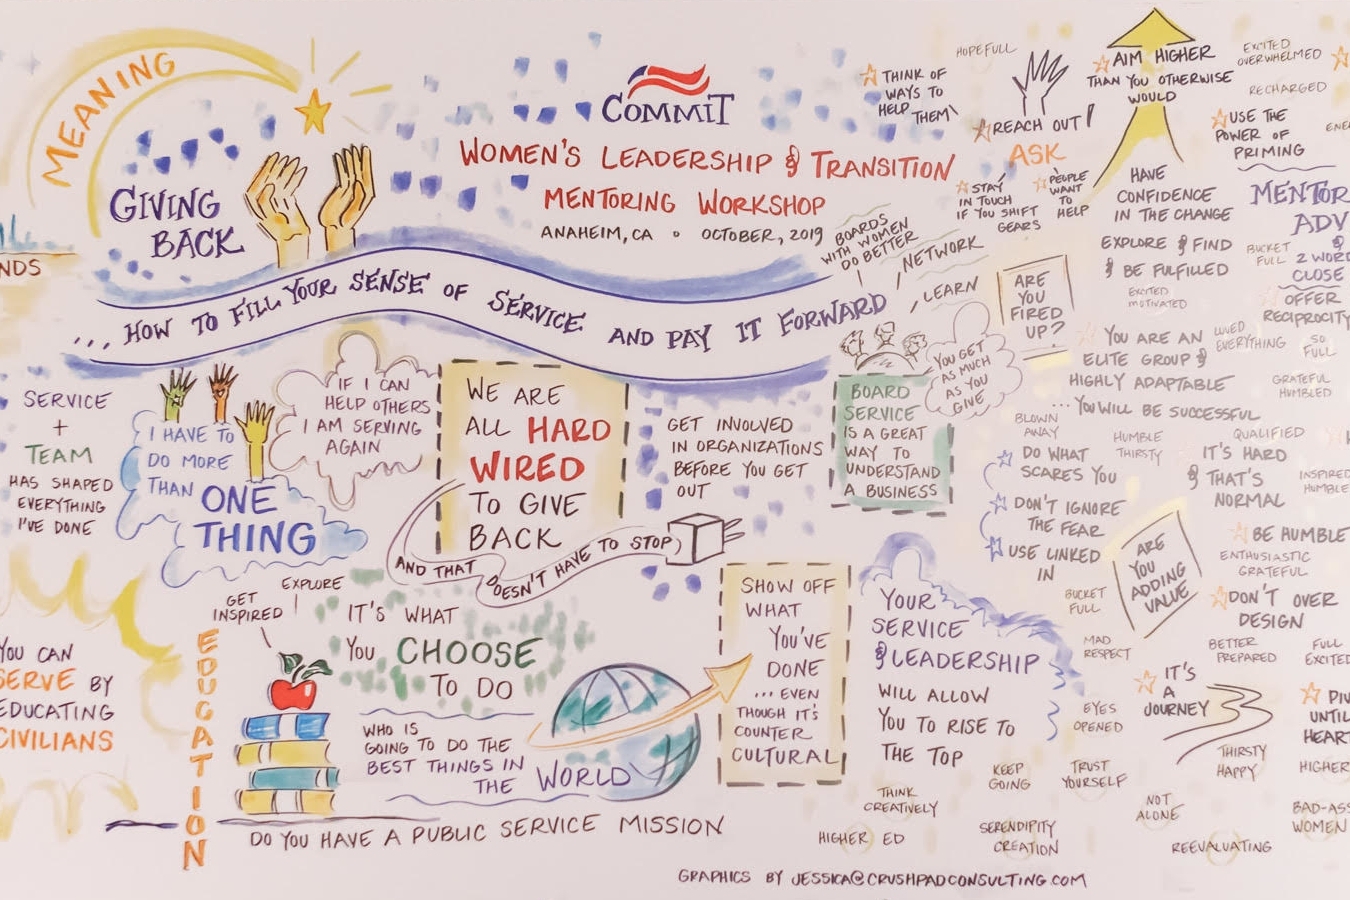 MEANING
GIVING
BACK
COMMIT
WOMEN'S LEADERSHIP & TRANSITION
MENTORING WORKSHOP
ANAHEIM, CA • OCTOBER, 2019
... HOW TO FILL YOUR SENSE OF SERVICE AND PAY IT FORWARD
NDS
SERVICE
+
TEAM
HAS SHAPED
EVERYTHING
I'VE DONE
I HAVE TO
DO MORE
THAN ONE
THING
IF I CAN
HELP OTHERS
I AM SERVING
AGAIN
WE ARE
ALL HARD
WIRED
TO GIVE
BACK
AND THAT DOESN'T HAVE TO STOP
GET INVOLVED
IN ORGANIZATIONS
BEFORE YOU GET
OUT
BOARDS
WITH WOMEN
DO BETTER
NETWORK
LEARN
BOARD
SERVICE
IS A GREAT
WAY TO
UNDERSTAND
A BUSINESS
YOU GET
AS MUCH
AS YOU
GIVE
YOU CAN
SERVE BY
EDUCATING
CIVILIANS
EDUCATION
GET
INSPIRED
EXPLORE
IT'S WHAT
YOU CHOOSE
TO DO
WHO IS
GOING TO DO THE
BEST THINGS IN
THE WORLD
DO YOU HAVE A PUBLIC SERVICE MISSION
SHOW OFF
WHAT
YOU'VE
DONE
... EVEN
THOUGH IT'S
COUNTER
CULTURAL
YOUR
SERVICE
& LEADERSHIP
WILL ALLOW
YOU TO RISE TO
THE TOP
THINK OF
WAYS TO
HELP THEM
HOPEFULL
REACH OUT!
ASK
STAY
IN TOUCH
IF YOU SHIFT
GEARS
PEOPLE
WANT
TO
HELP
AIM HIGHER
THAN YOU OTHERWISE
WOULD
HAVE
CONFIDENCE
IN THE CHANGE
EXPLORE & FIND
& BE FULFILLED
EXCITED
MOTIVATED
ARE
YOU
FIRED
UP?
YOU ARE AN
ELITE GROUP &
HIGHLY ADAPTABLE
... YOU WILL BE SUCCESSFUL
EXCITED
OVERWHELMED
RECHARGED
USE THE
POWER OF
PRIMING
ENE
MENTOR
ADV
&
BUCKET
FULL
2 WORD
CLOSE
OFFER
RECIPROCITY
LOVED
EVERYTHING
SO
FULL
GRATEFUL
HUMBLED
BLOWN
AWAY
HUMBLE
THIRSTY
QUALIFIED
DO WHAT
SCARES YOU
DON'T IGNORE
THE FEAR
USE LINKED
IN
IT'S HARD
& THAT'S
NORMAL
INSPIRED
HUMBLE
BE HUMBLE
ENTHUSIASTIC
GRATEFUL
ARE
YOU
ADDING
VALUE
BUCKET
FULL
DON'T OVER
DESIGN
MAD
RESPECT
BETTER
PREPARED
FULL
EXCITED
IT'S
A
JOURNEY
EYES
OPENED
DIV
UNTIL
HEART
THIRSTY
HAPPY
HIGHER
KEEP
GOING
TRUST
YOURSELF
THINK
CREATIVELY
NOT
ALONE
BAD-ASS
WOMEN
HIGHER ED
SERENDIPITY
CREATION
REEVALUATING
GRAPHICS BY JESSICA@CRUSHPADCONSULTING.COM